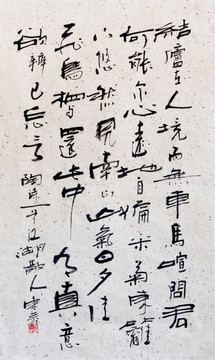 結廬在人境而無車馬喧問君
何能尔心遠地自偏采菊東籬
下悠然見南山山氣日夕佳
飛鳥相与還此中有真意
欲辨已忘言 陶詩一首江湖散人